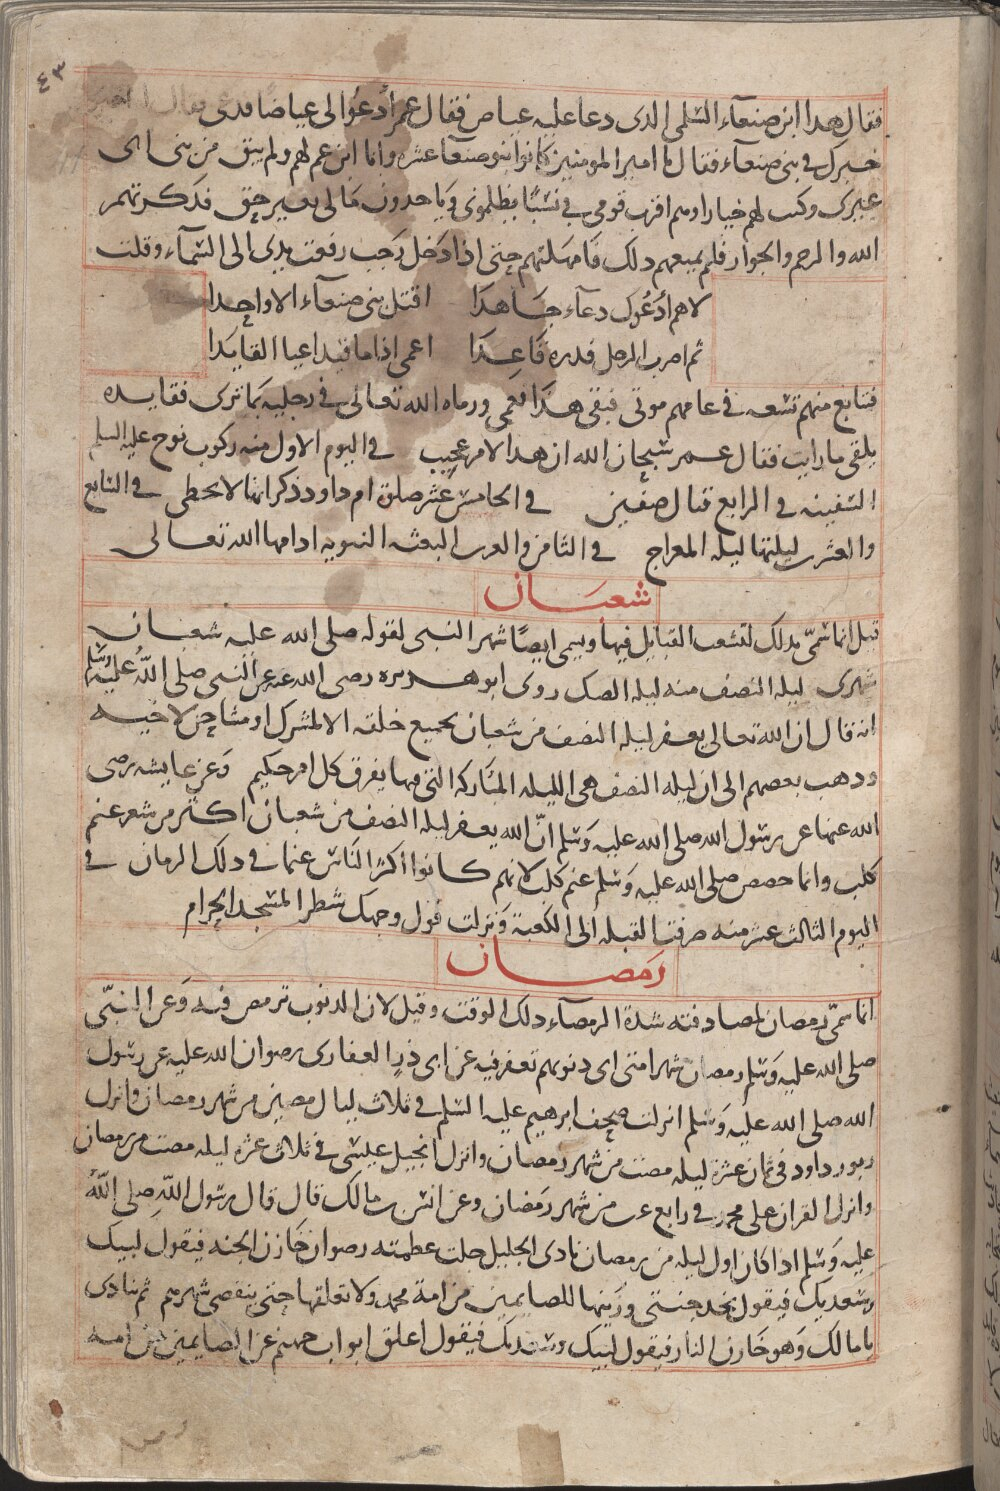 ٤٣
فقال هدا ابن صنعاء السلمى الدى دعا عليه عياض فقال عمر أدعوا لى عياضا فدعى فقال اخبرنى
خبرك فى بنى صنعاء فقال يا امير المومنين كانوا بنو صنعا عشره وانا ابن عم لهم ولم يبق من بنى ابى
غيرى وكنت لهم جارا وهم اقرب قومى فى نسبًا يظلمونى وياحدون مالى بغير حق فذكرتهم
الله والرحم والجوار فلم يمنعهم دلك فامهلتهم حتى اذا دخل رجب رفعت يدى الى السمآء وقلت
لاهم ادعوك دعآء جاهدا اقتل بنى صنعآء الا واحدا
ثم اضرب الرجل فدره قاعدا اعمى اذا ما قيد اعيا القايدا
فتتابع منهم تسعه فى عامهم موتى فبقى هذا فعمى ورماه الله تعالى فى رجليه كما ترى فقايده
يلقى ما رايت فقال عمر سبحان الله ان هدا لامر عجيب فى اليوم الاول منه ركوب نوح عليه السلم
السفينه فى الرابع قتال صفين فى الخامس عشر صلوة ام داود ذكر انها لا تخطى فى السابع
والعشرين ليلتها ليله المعراج فى الثامن والعشرين البعثه النبويه ادامها الله تعالى
شعبان
قيل انما سمى بدلك لتشعب القبايل فيها ويسمى ايضًا شهر النبى لقوله صلى الله عليه شعبان
شهرى ليله النصف منه ليله الصك روى ابو هريره رضى الله عنه عن النبى صلى الله عليه وسلم
انه قال ان الله تعالى يغفر ليله النصف من شعبان لجميع خلقه الا لمشرك او مشاحن لاخيه
ودهب بعضهم الى ان ليله النصف هى الليله المباركه التى فيها يفرق كل امر حكيم وعن عايشه رضى
الله عنها عن رسول الله صلى الله عليه وسلم انّ الله يغفر ليله النصف من شعبان اكثر من شعر غنم
كلب وانما خصص صلى الله عليه وسلم غنم كلب لانهم كانوا اكثر الناس غنما فى دلك الزمان فى
اليوم الثالث عشر منه صرفت القبله الى الكعبة ونزلت فول وجهك شطر المسجد الحرام
رمضان
انما سمّى رمضان لمصادفته شدة الرمضاء دلك الوقت وقيل لان الدنوب ترمض فيه وعن النبّى
صلى الله عليه وسلم رمضان شهر امتى اى دنوبهم تغفر فيه عن ابى ذر الغفارى رضوان الله عليه عن رسول
الله صلى الله عليه وسلم انزلت صحف ابرهيم عليه السلم فى ثلاث ليال مضين من شهر رمضان وانزل
زبور داود فى ثمان عشرة ليله مضت من شهر رمضان وانزل انجيل عيسى فى ثلاث عشره ليله مضت من رمضان
وانزل القران على محمد فى رابع من شهر رمضان وعن انس بن مالك قال قال رسول اللّٰه صلى اللّٰه
عليه وسلم اذا كان اول ليله من رمضان نادى الجليل جلت عظمته رضوان خازن الجنه فيقول لبيك
وسعديك فيقول نجد جنتى وزينها للصايمين من امة محمد ولا تغلقها حتى ينقضى شهرهم ثم ينادى
يا مالك وهو خازن النار فيقول لبيك وسعديك فيقول اغلق ابواب جهنم عن الصايمين من امة